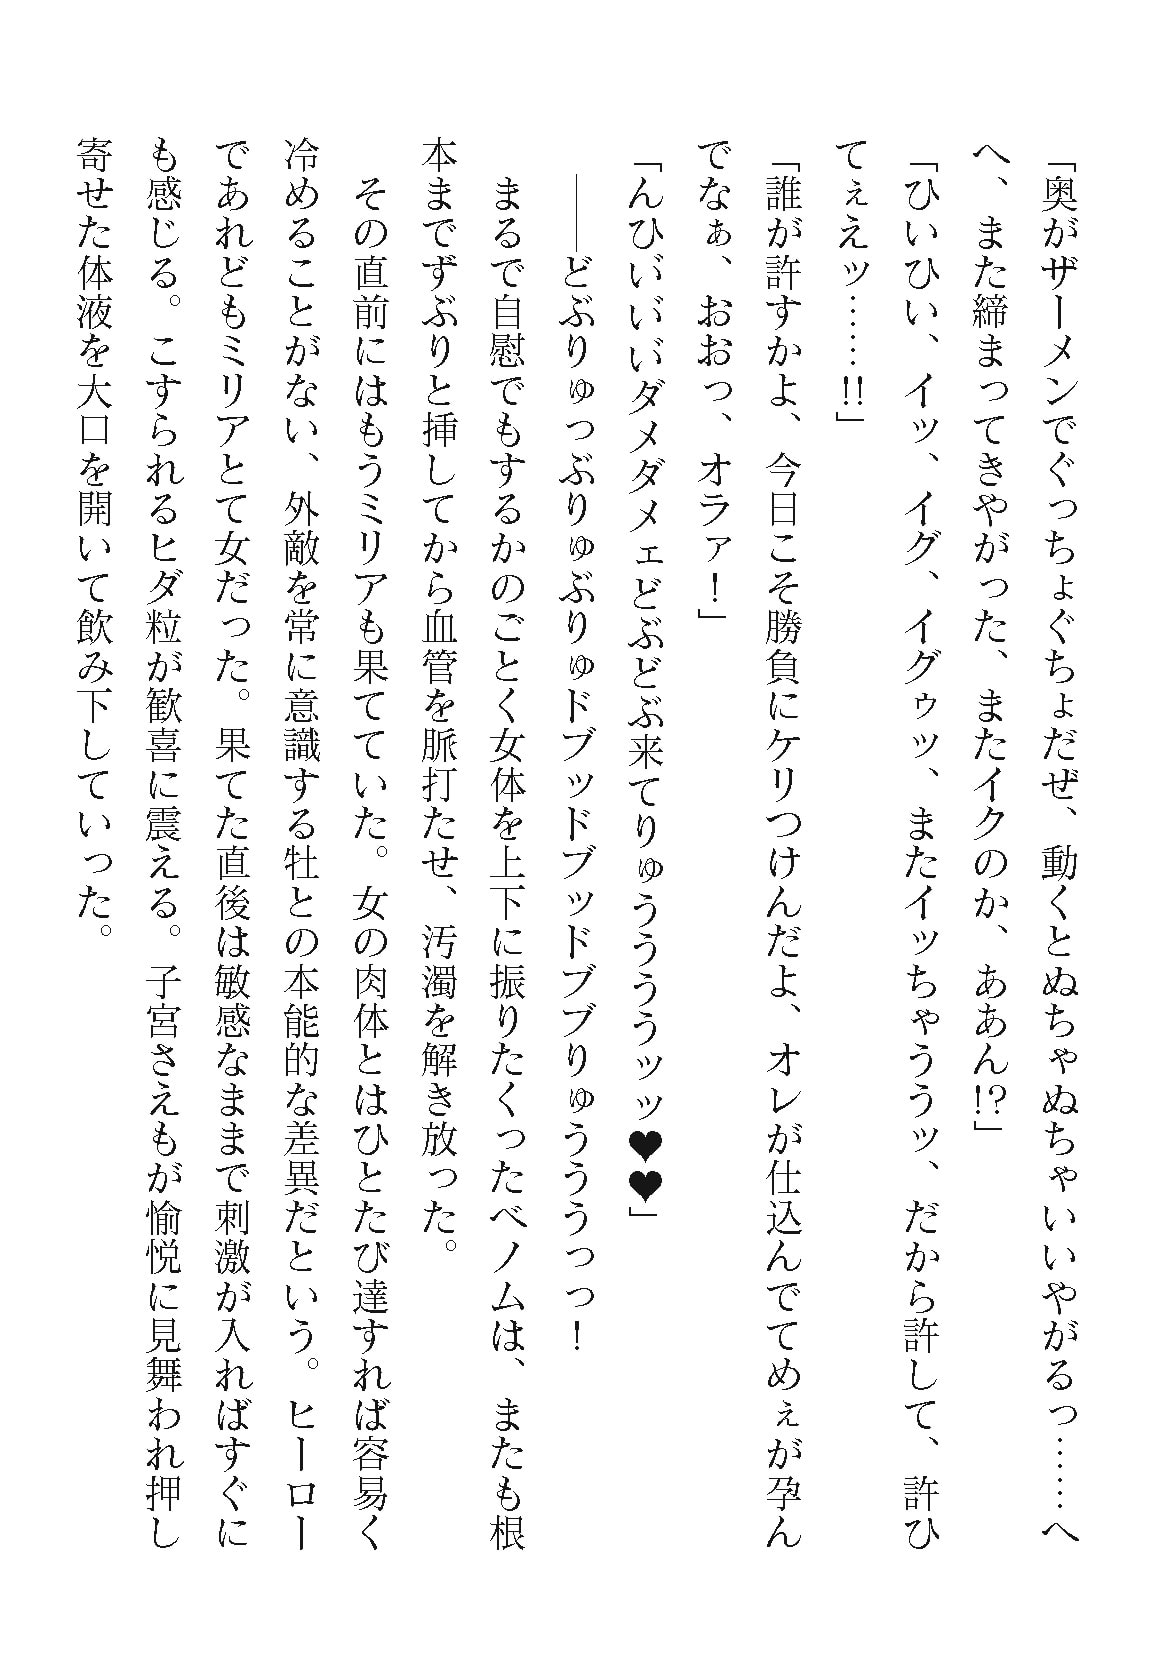 「奥がザーメンでぐっちょぐちょだぜ、動くとぬちゃぬちゃいいやがるっ……へ
へ、また締まってきやがった、またイクのか、ああん!?」
「ひいひい、イッ、イグ、イグゥッ、またイッちゃううッ、だから許して、許ひ
てぇえッ……!!」
「誰が許すかよ、今日こそ勝負にケリつけんだよ、オレが仕込んでてめぇが孕ん
でなぁ、おおっ、オラァ！」
「んひい゙い゙い゙ダメダメェどぶどぶ来てりゅうううぅッッ♥♥」
――どぶりゅっぶりゅぶりゅドブッドブッドブブりゅうううっっ！
　まるで自慰でもするかのごとく女体を上下に振りたくったベノムは、またも根
本までずぶりと挿してから血管を脈打たせ、汚濁を解き放った。
　その直前にはもうミリアも果てていた。女の肉体とはひとたび達すれば容易く
冷めることがない、外敵を常に意識する牡との本能的な差異だという。ヒーロー
であれどもミリアとて女だった。果てた直後は敏感なままで刺激が入ればすぐに
も感じる。こすられるヒダ粒が歓喜に震える。子宮さえもが愉悦に見舞われ押し
寄せた体液を大口を開いて飲み下していった。